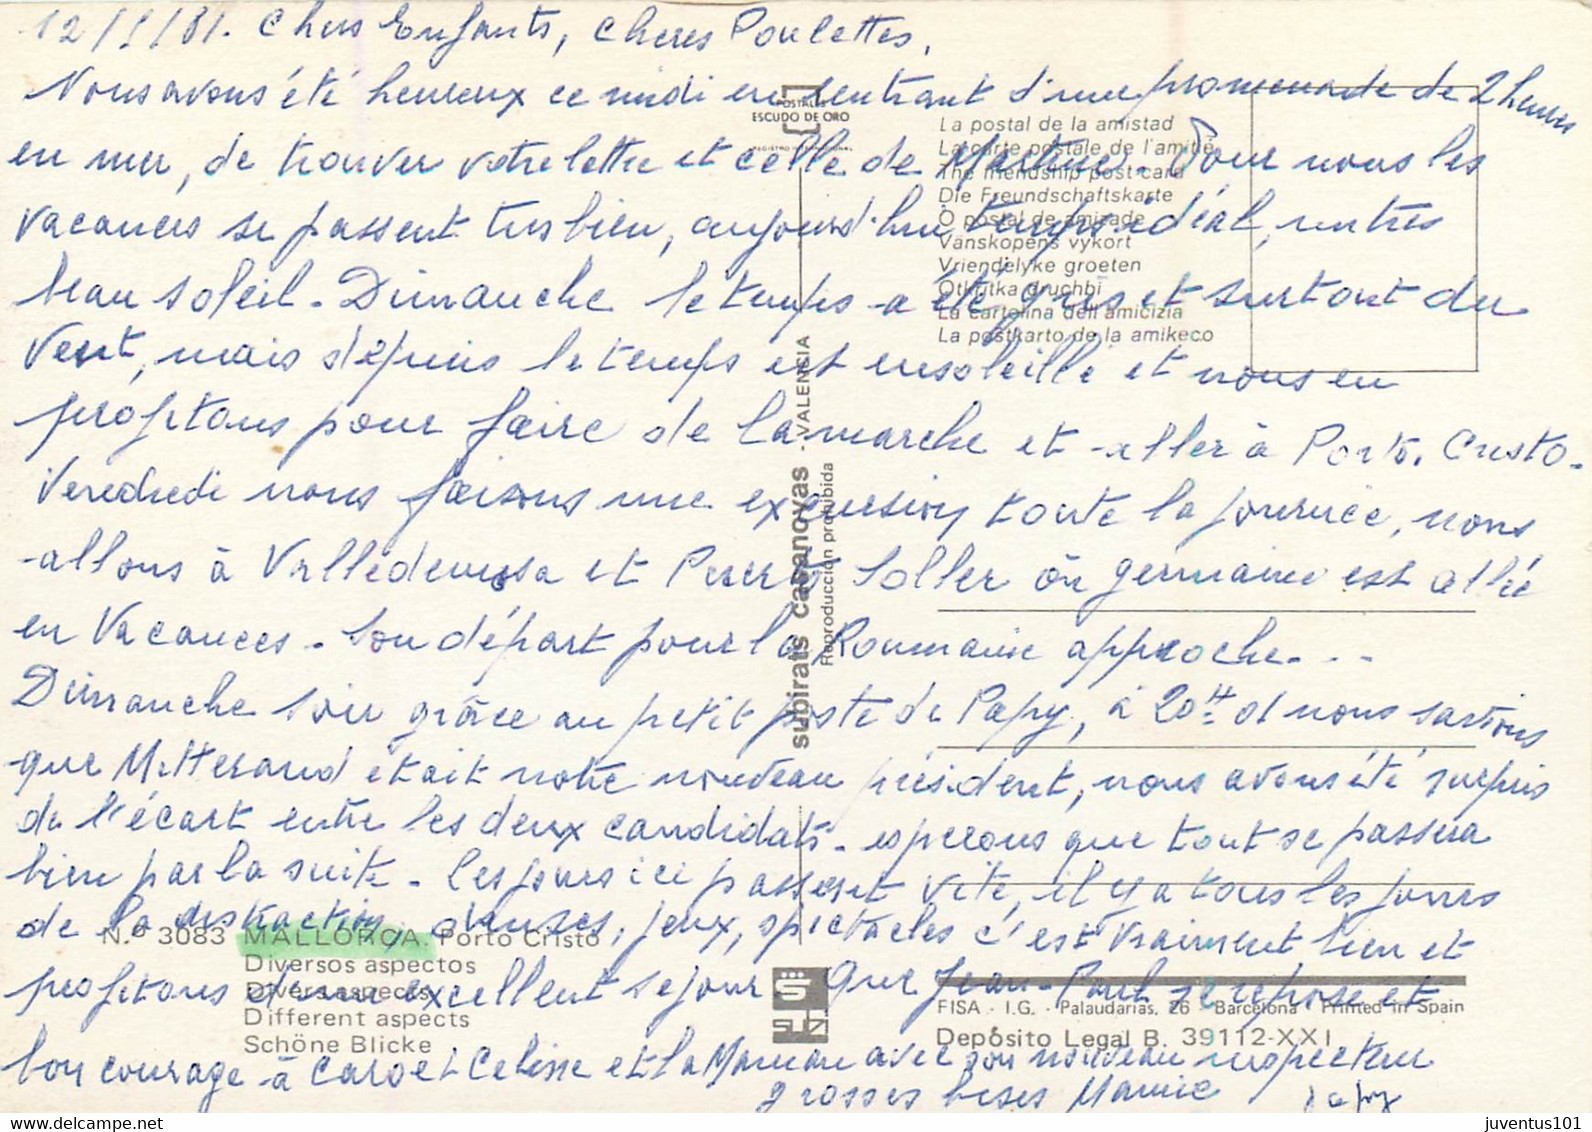 12/5/81. Chers Enfants, Chères Poulettes,
Nous avons été heureux ce midi en rentrant d'une promenade de 2 heures
en mer, de trouver votre lettre et celle de Martine. Pour nous les
vacances se passent très bien, aujourd'hui temps idéal, un très
beau soleil - Dimanche le temps a été gris et surtout du
vent, mais depuis le temps est ensoleillé et nous en
profitons pour faire de la marche et aller à Porto. Cristo.
Vendredi nous faisons une excursion toute la journée, nous
allons à Valledemosa et Puerto Soller où germaine est allée
en vacances. Son départ pour la Roumanie approche...
Dimanche soir grâce au petit poste de Papy, à 20H. et nous savions
que Mitterand était notre nouveau président, nous avons été surpris
de l'écart entre les deux candidats - esperons que tout se passera
bien par la suite - les jours ici passent vite, il y a tous les jours
de la distraction, danses, jeux, spectacles c'est vraiment bien et
profitons d'un excellent sejour. Que Jean-Paul se repose et
bon courage à Carol et Celine et la Maman avec son nouveau inspecteur
grosses bises Mamie Papy
POSTALES
ESCUDO DE ORO
REGISTRO INTERNACIONAL
La postal de la amistad
La carte postale de l'amitié
The friendship post card
Die Freundschaftskarte
O postal de amizade
Vänskopens vykort
Vriendelyke groeten
Otkrutka druchbi
La cartolina dell'amicizia
La postkarto de la amikeco
subirats casanovas - VALENCIA
Reproducción prohibida
N.º 3083 MALLORCA. Porto Cristo
Diversos aspectos
Divers aspects
Different aspects
Schöne Blicke
FISA - I.G. - Palaudarias, 26 - Barcelona - Printed in Spain
Depósito Legal B. 39112-XXI
juventus101